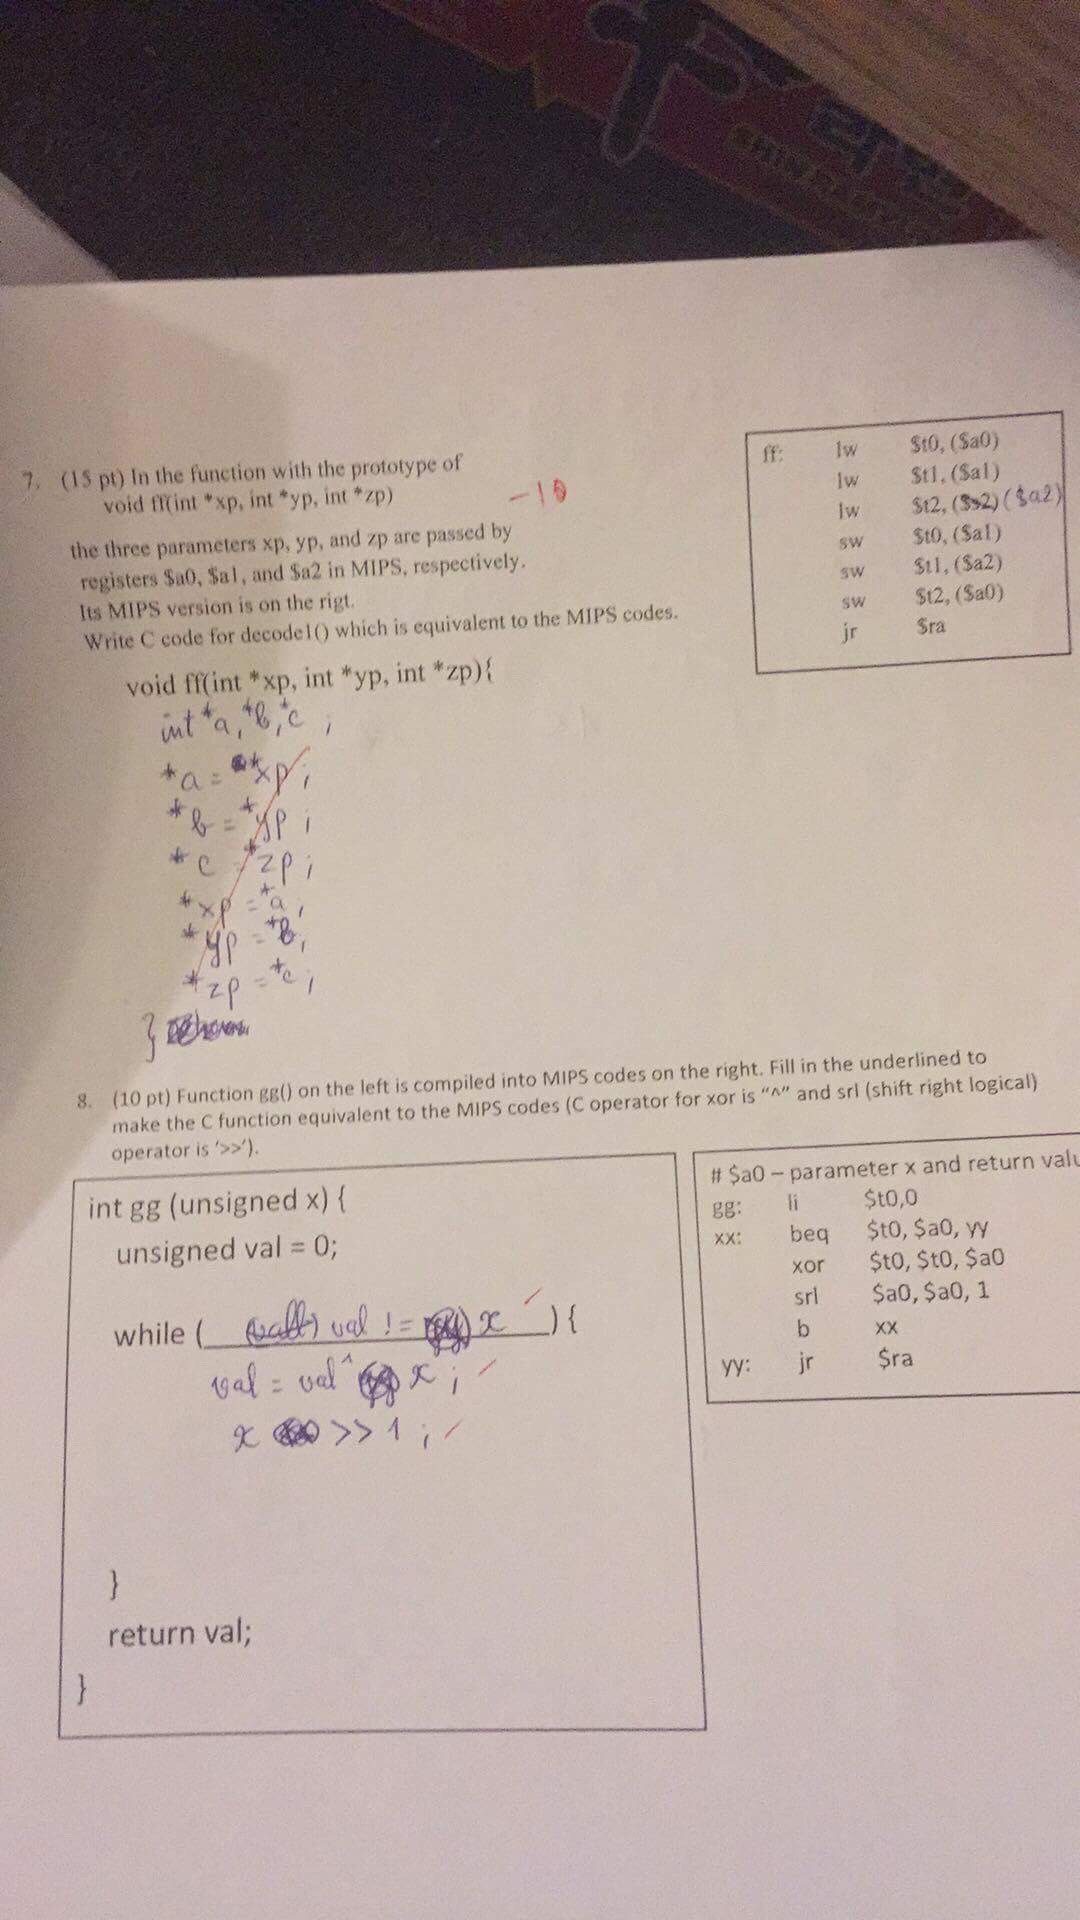 7. (15 pt) In the function with the prototype of
void ff(int *xp, int *yp, int *zp)
-10
the three parameters xp, yp, and zp are passed by
registers $a0, $a1, and $a2 in MIPS, respectively.
Its MIPS version is on the rigt.
Write C code for decode1() which is equivalent to the MIPS codes.
ff: lw $t0, ($a0)
lw $t1, ($a1)
lw $t2, ($s2) ($a2)
sw $t0, ($a1)
sw $t1, ($a2)
sw $t2, ($a0)
jr $ra
void ff(int *xp, int *yp, int *zp){
int *a, *b, *c ;
*a = *xp ;
*b = *yp ;
*c = *zp ;
*xp = *a ;
*yp = *b ;
*zp = *c ;
}
8. (10 pt) Function gg() on the left is compiled into MIPS codes on the right. Fill in the underlined to
make the C function equivalent to the MIPS codes (C operator for xor is “^” and srl (shift right logical)
operator is ‘>>’).
int gg (unsigned x) {
unsigned val = 0;
while ( val != x ) {
val = val ^ x ;
x >> 1 ;
}
return val;
}
# $a0 – parameter x and return valu
gg: li $t0,0
xx: beq $t0, $a0, yy
xor $t0, $t0, $a0
srl $a0, $a0, 1
b xx
yy: jr $ra